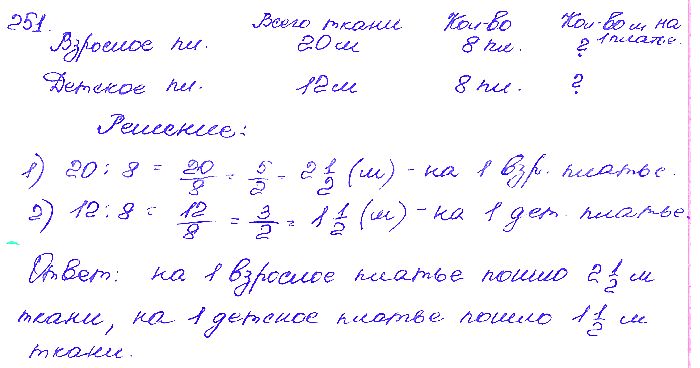 251. Всего ткани Кол-во Кол-во м на 1 платье.
Взрослое пл. 20 м 8 пл. ?
Детское пл. 12 м 8 пл. ?
Решение:
1) 20 : 8 = 20/8 = 5/2 = 2 1/2 (м) - на 1 взр. платье.
2) 12 : 8 = 12/8 = 3/2 = 1 1/2 (м) - на 1 дет. платье.
Ответ: на 1 взрослое платье пошло 2 1/2 м
ткани, на 1 детское платье пошло 1 1/2 м
ткани.